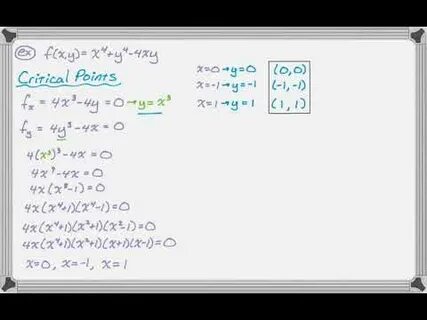 ex f(x,y) = x⁴+y⁴-4xy
Critical Points
fₓ = 4x³-4y = 0 → y = x³
fᵧ = 4y³-4x = 0
4(x³)³-4x = 0
4x⁹-4x = 0
4x(x⁸-1) = 0
4x(x⁴+1)(x⁴-1) = 0
4x(x⁴+1)(x²+1)(x²-1) = 0
4x(x⁴+1)(x²+1)(x+1)(x-1) = 0
x=0, x=-1, x=1
x=0 → y=0 (0,0)
x=-1 → y=-1 (-1,-1)
x=1 → y=1 (1,1)